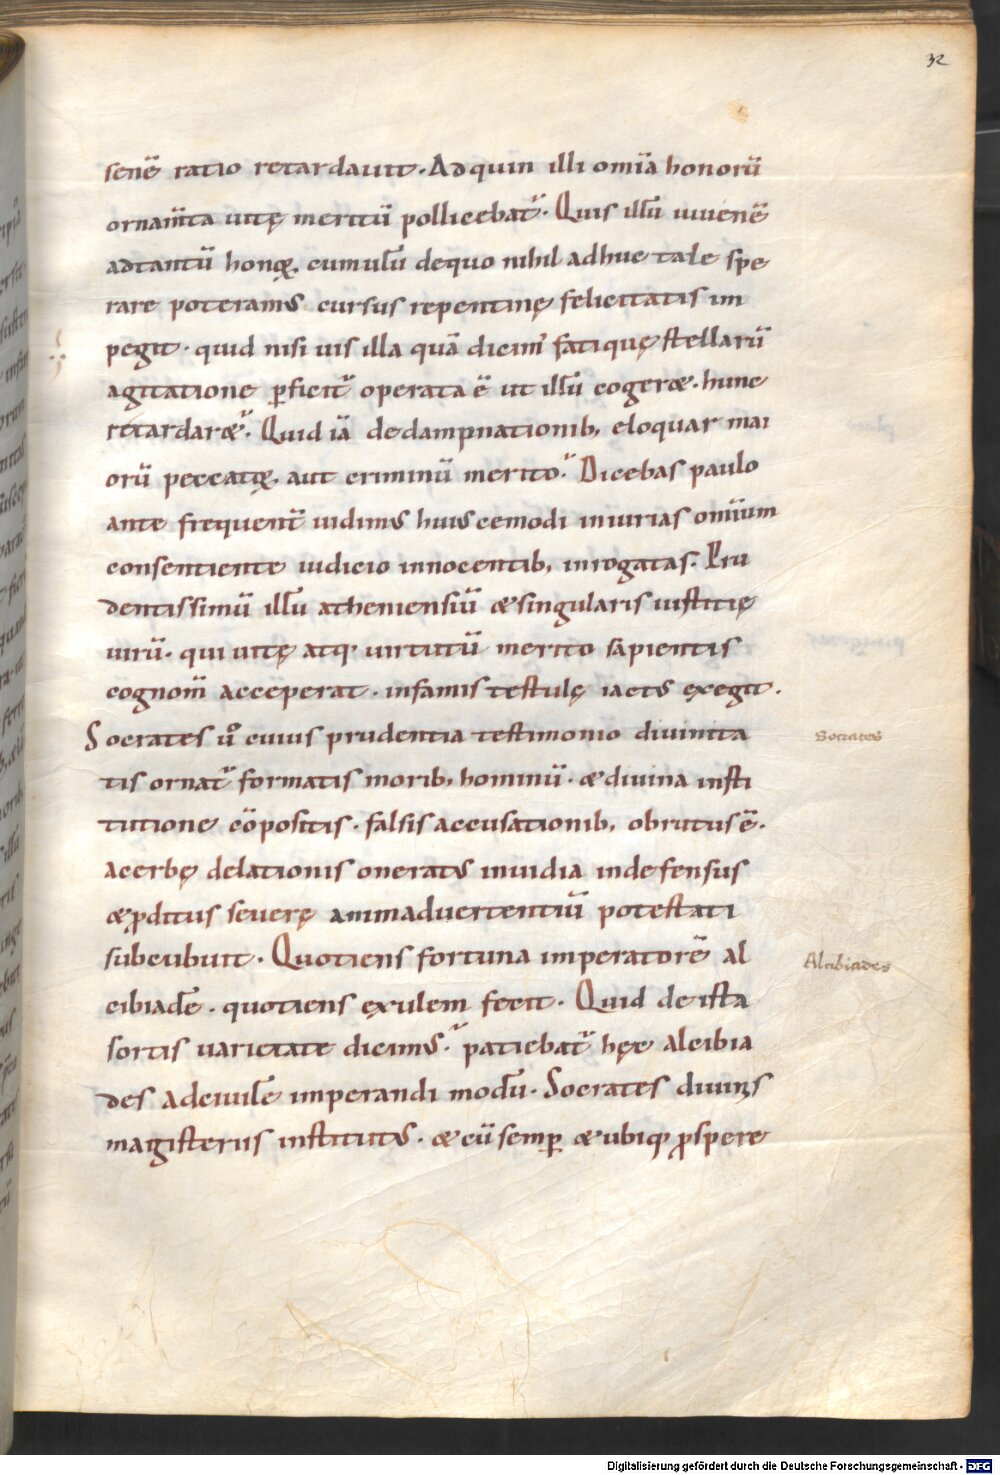 32
senē ratio retardauit. Ad quin illi om̄ia honorū
ornam̄ta uitę meritū pollicebat̄. Quis illū uiuenē
ad tantū honoꝝ, cumulū de quo nihil adhuc tale spe
rare poteramꝰ cursus repentinę felicitatis im
pegit. quid nisi uis illa quā dicim̄ fatiquę stellarū
agitatione ꝑficit̄ operata ē ut illū cogeret. hunc
retardaret̄. Quid iā de dampnationib, eloquar mai
orū peccatoꝝ, aut criminū merito. Dicebas paulo
ante frequent̄ uidimꝰ huiuscemodi iniurias omīum
consentiente iudicio innocentib, inrogatas. Pru
dentissimū illū atheniensiū & singularis iustitię
uirū. qui uitę atq, uirtutū merito sapientis
cognom̄ acceperat. infamis testulę iactꝰ exegit.
Socrates ū̊ cuius prudentia testimonio diuinita
Socrates
tis ornat̄ formatis morib, hominū. & diuina insti
tutione cōpositis. falsis accusationib, obrutus ē.
acerbę delationis oneratꝰ inuidia indefensus
& ꝓditus seuerę animaduertentiū potestati
subcubuit. Quotiens fortuna imperatorē al
Alcibiades
cibiadē. quotiens exulem fecit. Quid de ista
sortis uarietate dicimꝰ. patiebat̄ hęc alcibia
des ad ciuilē imperandi modū. Socrates diuinis
magisteriis institutꝰ. & cū semꝑ & ubiq, ꝓspere
Digitalisierung gefördert durch die Deutsche Forschungsgemeinschaft - DFG